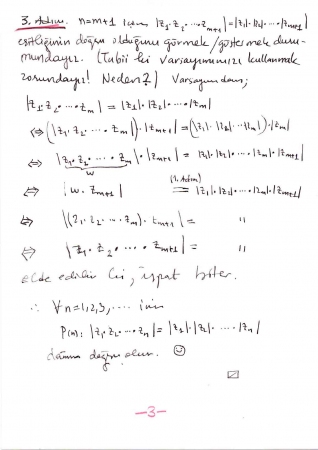 3. Adım. n=m+1 için, |z₁·z₂·⋯·z_{m+1}|=|z₁|·|z₂|·⋯·|z_{m+1}|
eşitliğinin doğru olduğunu görmek/göstermek duru-
mundayız. (Tabii ki varsayımımızı kullanmak
zorundayız! Neden?) Varsayımdan;
|z₁·z₂·⋯·z_m| = |z₁|·|z₂|·⋯·|z_m|
⇔ (|z₁·z₂·⋯·z_m|)·|z_{m+1}| = (|z₁|·|z₂|⋯|z_m|)·|z_{m+1}|
⇔ |z₁·z₂·⋯·z_m|·|z_{m+1}| = |z₁|·|z₂|·⋯·|z_m|·|z_{m+1}|
w
⇔ |w·z_{m+1}| = |z₁|·|z₂|·⋯·|z_m|·|z_{m+1}|
⇔ |(z₁·z₂·⋯·z_m)·z_{m+1}| = "
⇔ |z₁·z₂·⋯·z_{m+1}| = "
elde edilir ki, ispat biter.
∴ ∀n=1,2,3,⋯ için
P(n): |z₁·z₂·⋯·z_n| = |z₁|·|z₂|·⋯·|z_n|
daima doğru olur. ☺
-3-